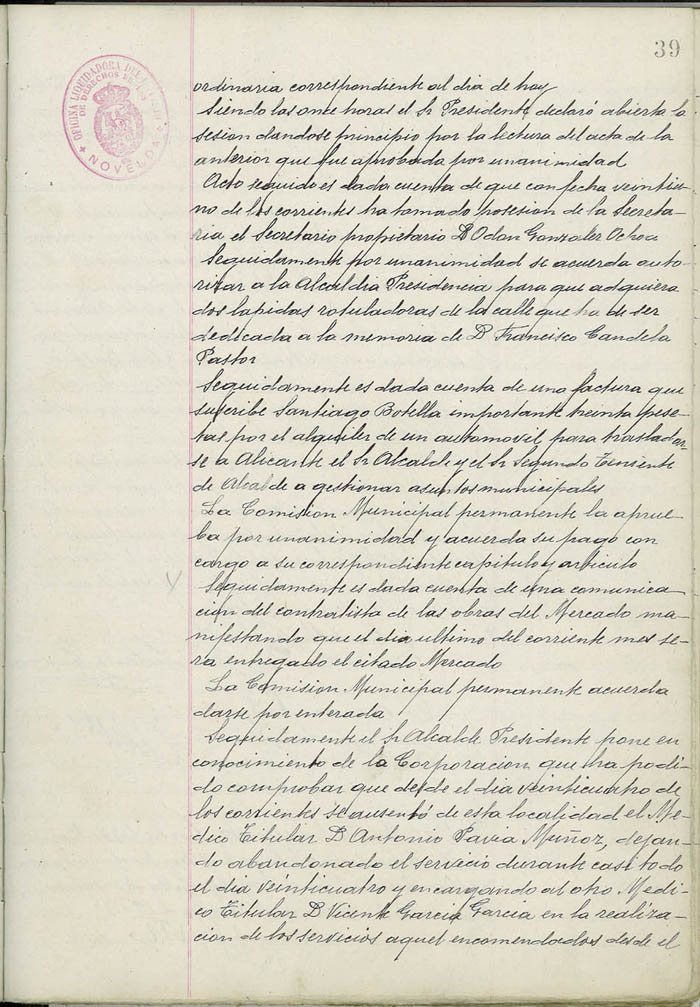 39
OFICINA LIQUIDADORA DEL
DE DERECHOS REALES
NOVELDA
ordinaria correspondiente al dia de hoy
Siendo las once horas el Sr Presidente declaró abierta la
sesion dandose principio por la lectura del acta de la
anterior que fue aprobada por unanimidad
Acto seguido es dada cuenta de que con fecha veintiu-
no de los corrientes ha tomado posesion de la Secreta-
ria el Secretario propietario D Odon Gonzalez Ochoa
Seguidamente por unanimidad se acuerda auto-
rizar a la Alcaldia Presidencia para que adquiera
dos lapidas rotuladoras de la calle que ha de ser
dedicada a la memoria de D Francisco Candela
Pastor
Seguidamente es dada cuenta de una factura que
suscribe Santiago Botella importante treinta pese-
tas por el alquiler de un automovil para trasladar-
se a Alicante el Sr Alcalde y el Sr Segundo Teniente
de Alcalde a gestionar asuntos municipales
La Comision Municipal permanente la aprue-
ba por unanimidad y acuerda su pago con
cargo a su correspondiente capitulo y articulo
Seguidamente es dada cuenta de una comunica
cion del contratista de las obras del Mercado ma-
nifestando que el dia ultimo del corriente mes se-
ra entregado el citado Mercado
La Comision Municipal permanente acuerda
darse por enterada
Seguidamente el Sr Alcalde Presidente pone en
conocimiento de la Corporacion que ha podi-
do comprobar que desde el dia veinticuatro de
los corrientes se ausentó de esta localidad el Me-
dico Titular D Antonio Pavia Muñoz, dejan-
do abandonado el servicio durante casi todo
el dia veinticuatro y encargando al otro Medi-
co Titular D Vicente Garcia Garcia en la realiza-
cion de los servicios aquel encomendados desde el